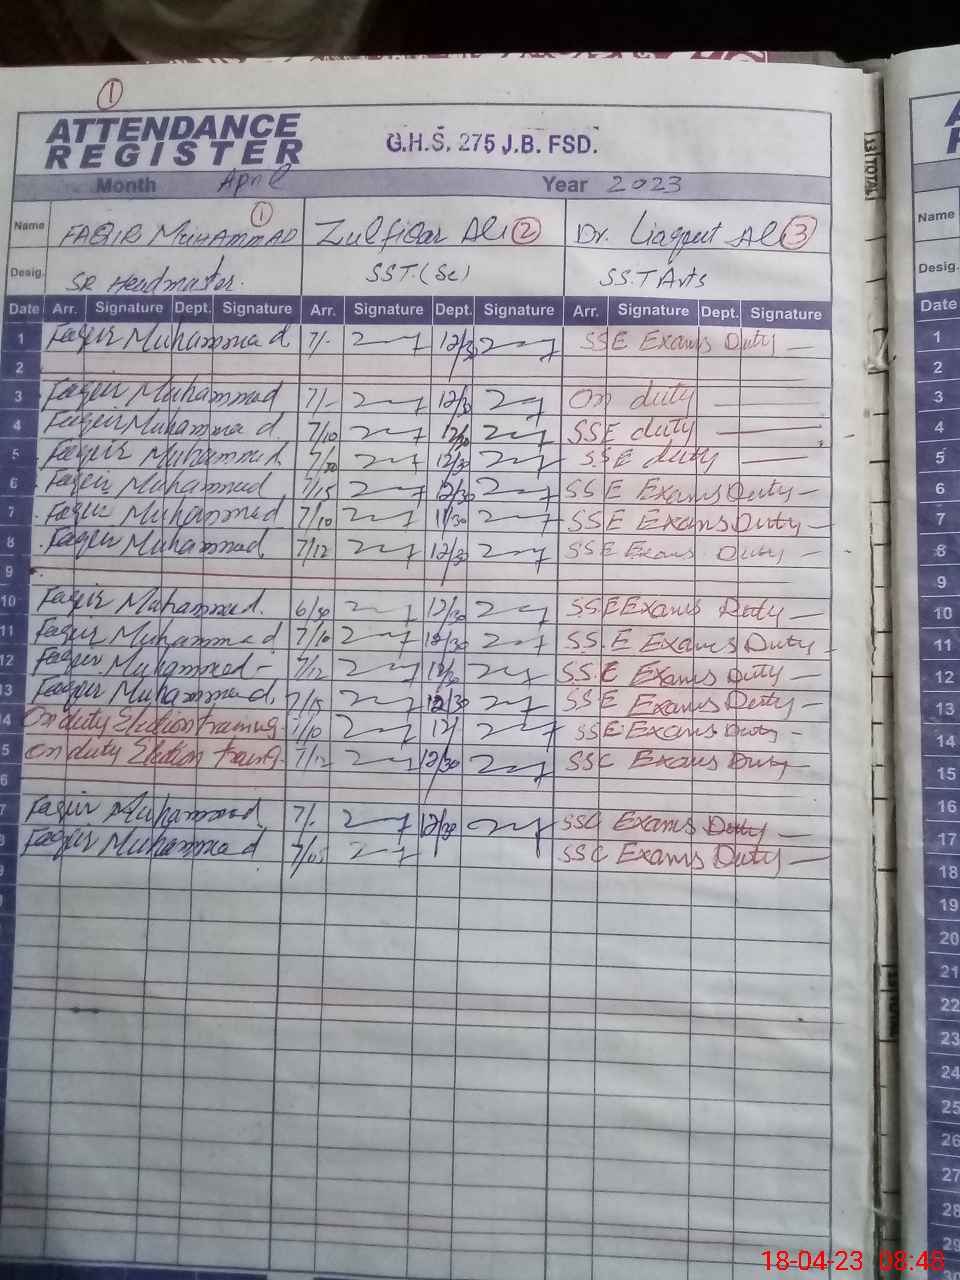 1
ATTENDANCE
REGISTER
G.H.S. 275 J.B. FSD.
Month April Year 2023
Name FAQIR MUHAMMAD 1 Zulfiqar Ali 2 Dr. Liaqut Ali 3
Desig. SR Headmaster. SST.(Sc) SST Arts
Date Arr. Signature Dept. Signature Arr. Signature Dept. Signature Arr. Signature Dept. Signature
1 Faqir Muhammad 7/- 12/30 SSE Exams Duty —
2
3 Faqir Muhammad 7/- 12/30 On duty —
4 Faqir Muhammad. 7/10 12/30 SSE duty —
5 Faqir Muhammad. 12/30 SSE duty —
6 Faqir Muhammad 7/15 12/30 SSE Exams Duty —
7 Faqir Muhammad 7/10 11/30 SSE Exams Duty —
8 Faqir Muhammad, 7/12 12/30 SSE Exams Duty —
9
10 Faqir Muhammad. 6/50 12/30 S.S.E Exams Duty —
11 Faqir Muhammad 7/10 12/30 S.S.E Exams Duty —
12 Faqir Muhammad - 7/12 S.S.E Exams Duty —
13 Faqir Muhammad, 7/15 12/30 SSE Exams Duty —
4 On duty Election training. 7/10 12/ SSE Exams Duty -
5 On duty Election traing. 7/12 12/30 SSC Exams Duty —
6
7 Faqir Muhammad 7/. 12/30 SSC Exams Duty —
8 Faqir Muhammad. 7/05 SSC Exams Duty —
9
13 TOTAL
Name
Desig.
Date
1
2
3
4
5
6
7
8
9
10
11
12
13
14
15
16
17
18
19
20
21
22
23
24
25
26
27
28
29
18-04-23 08:48